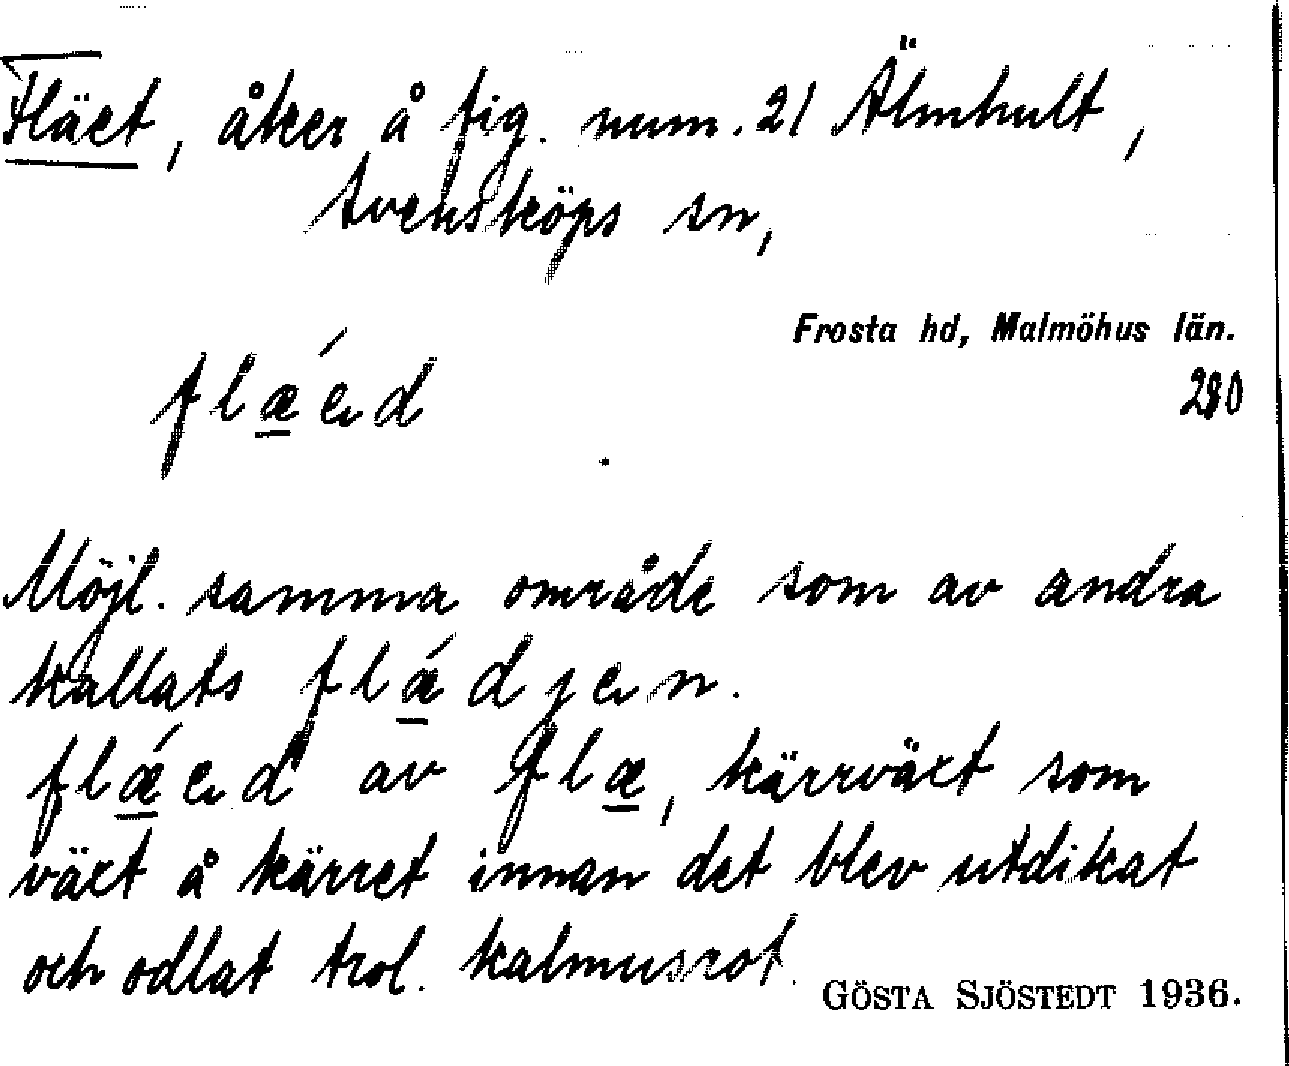 Fläet, åker å fig. num. 21 Älmhult,
Svensköps sn,
Frosta hd, Malmöhus län.
280
flǽəd
Möjl. samma område som av andra
kallats flǽdjən.
flǽəd av flæ, kärrväxt som
växt å kärret innan det blev utdikat
och odlat trol. kalmusrot.
GÖSTA SJÖSTEDT 1936.